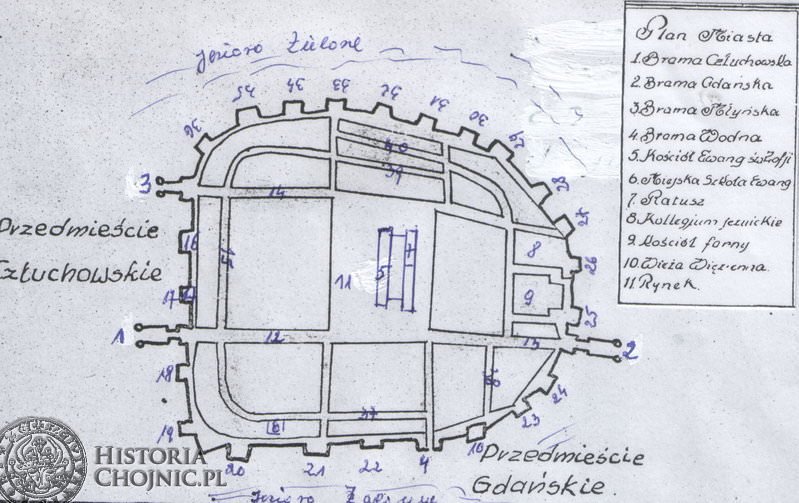 Jezioro Zielone
Plan Miasta
1. Brama Człuchowska
2. Brama Gdańska
3. Brama Młyńska
4. Brama Wodna
5. Kościół Ewang św Zofji
6. Miejska Szkoła Ewang
7. Ratusz
8. Kollegjum jezuickie
9. Kościół farny
10. Wieża Więzienna
11. Rynek.
36 35 34 33 32 31 30 29
28
27
26
25
24
23
40
39
3
14
Przedmieście
Człuchowskie
16
15
11
5
7
8
9
17
1
12
13
2
18
37
38
6
19
20
21
22
4
10
Przedmieście
Gdańskie.
Jezioro
HISTORIA
CHOJNIC.PL